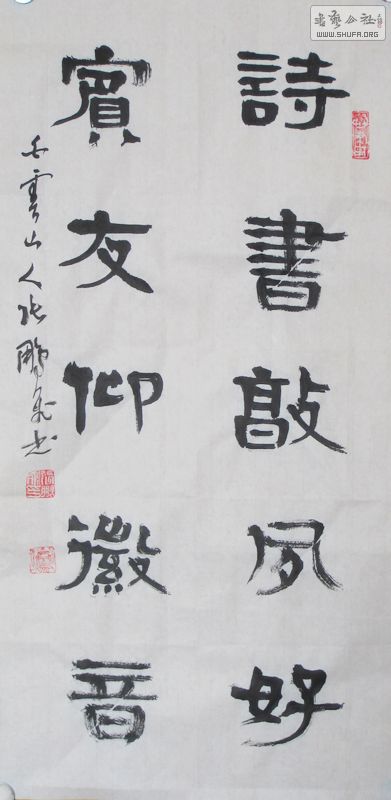 書藝公社
WWW.SHUFA.ORG
詩書敦夙好
賓友仰徽音
雲山人张鵬飛书